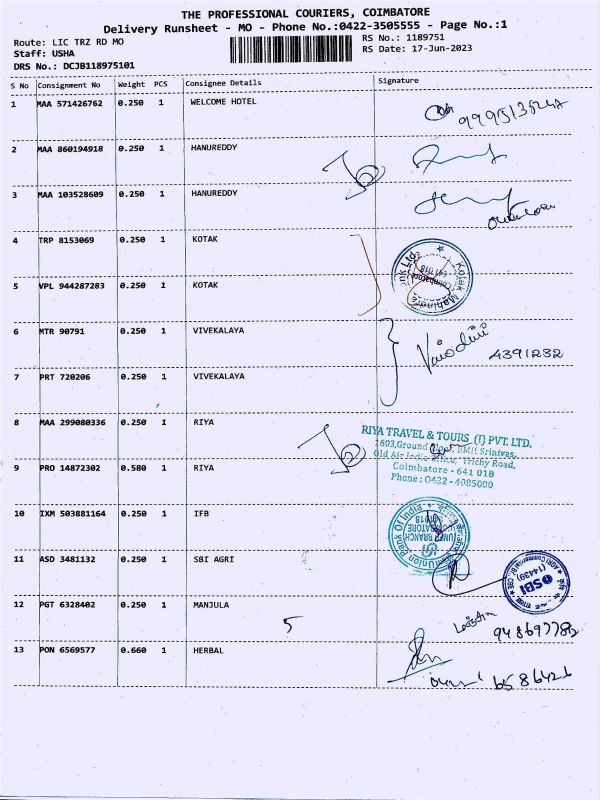 THE PROFESSIONAL COURIERS, COIMBATORE
Delivery Runsheet - MO - Phone No.:0422-3505555 - Page No.:1
Route: LIC TRZ RD MO
Staff: USHA
DRS No.: DCJB118975101
RS No.: 1189751
RS Date: 17-Jun-2023
S No Consignment No Weight PCS Consignee Details Signature
1 MAA 571426762 0.250 1 WELCOME HOTEL
2 MAA 860194918 0.250 1 HANUREDDY
3 MAA 103528609 0.250 1 HANUREDDY
4 TRP 8153069 0.250 1 KOTAK
Kotak Mahindra
Coimbatore
641 018
5 VPL 944287283 0.250 1 KOTAK
6 MTR 90791 0.250 1 VIVEKALAYA
4391232
7 PRT 720206 0.250 1 VIVEKALAYA
8 MAA 299080336 0.250 1 RIYA
RIYA TRAVEL & TOURS (I) PVT. LTD.
1603,Ground Floor, Srinivas,
Old Air India Office, Trichy Road,
Coimbatore - 641 018
Phone : 0422 - 4085000
9 PRO 14872302 0.580 1 RIYA
10 IXM 503881164 0.250 1 IFB
Union Bank Of India
COIMBATORE
11 ASD 3481132 0.250 1 SBI AGRI
SBI
(14439)
12 PGT 6328402 0.250 1 MANJULA
5
13 PON 6569577 0.660 1 HERBAL